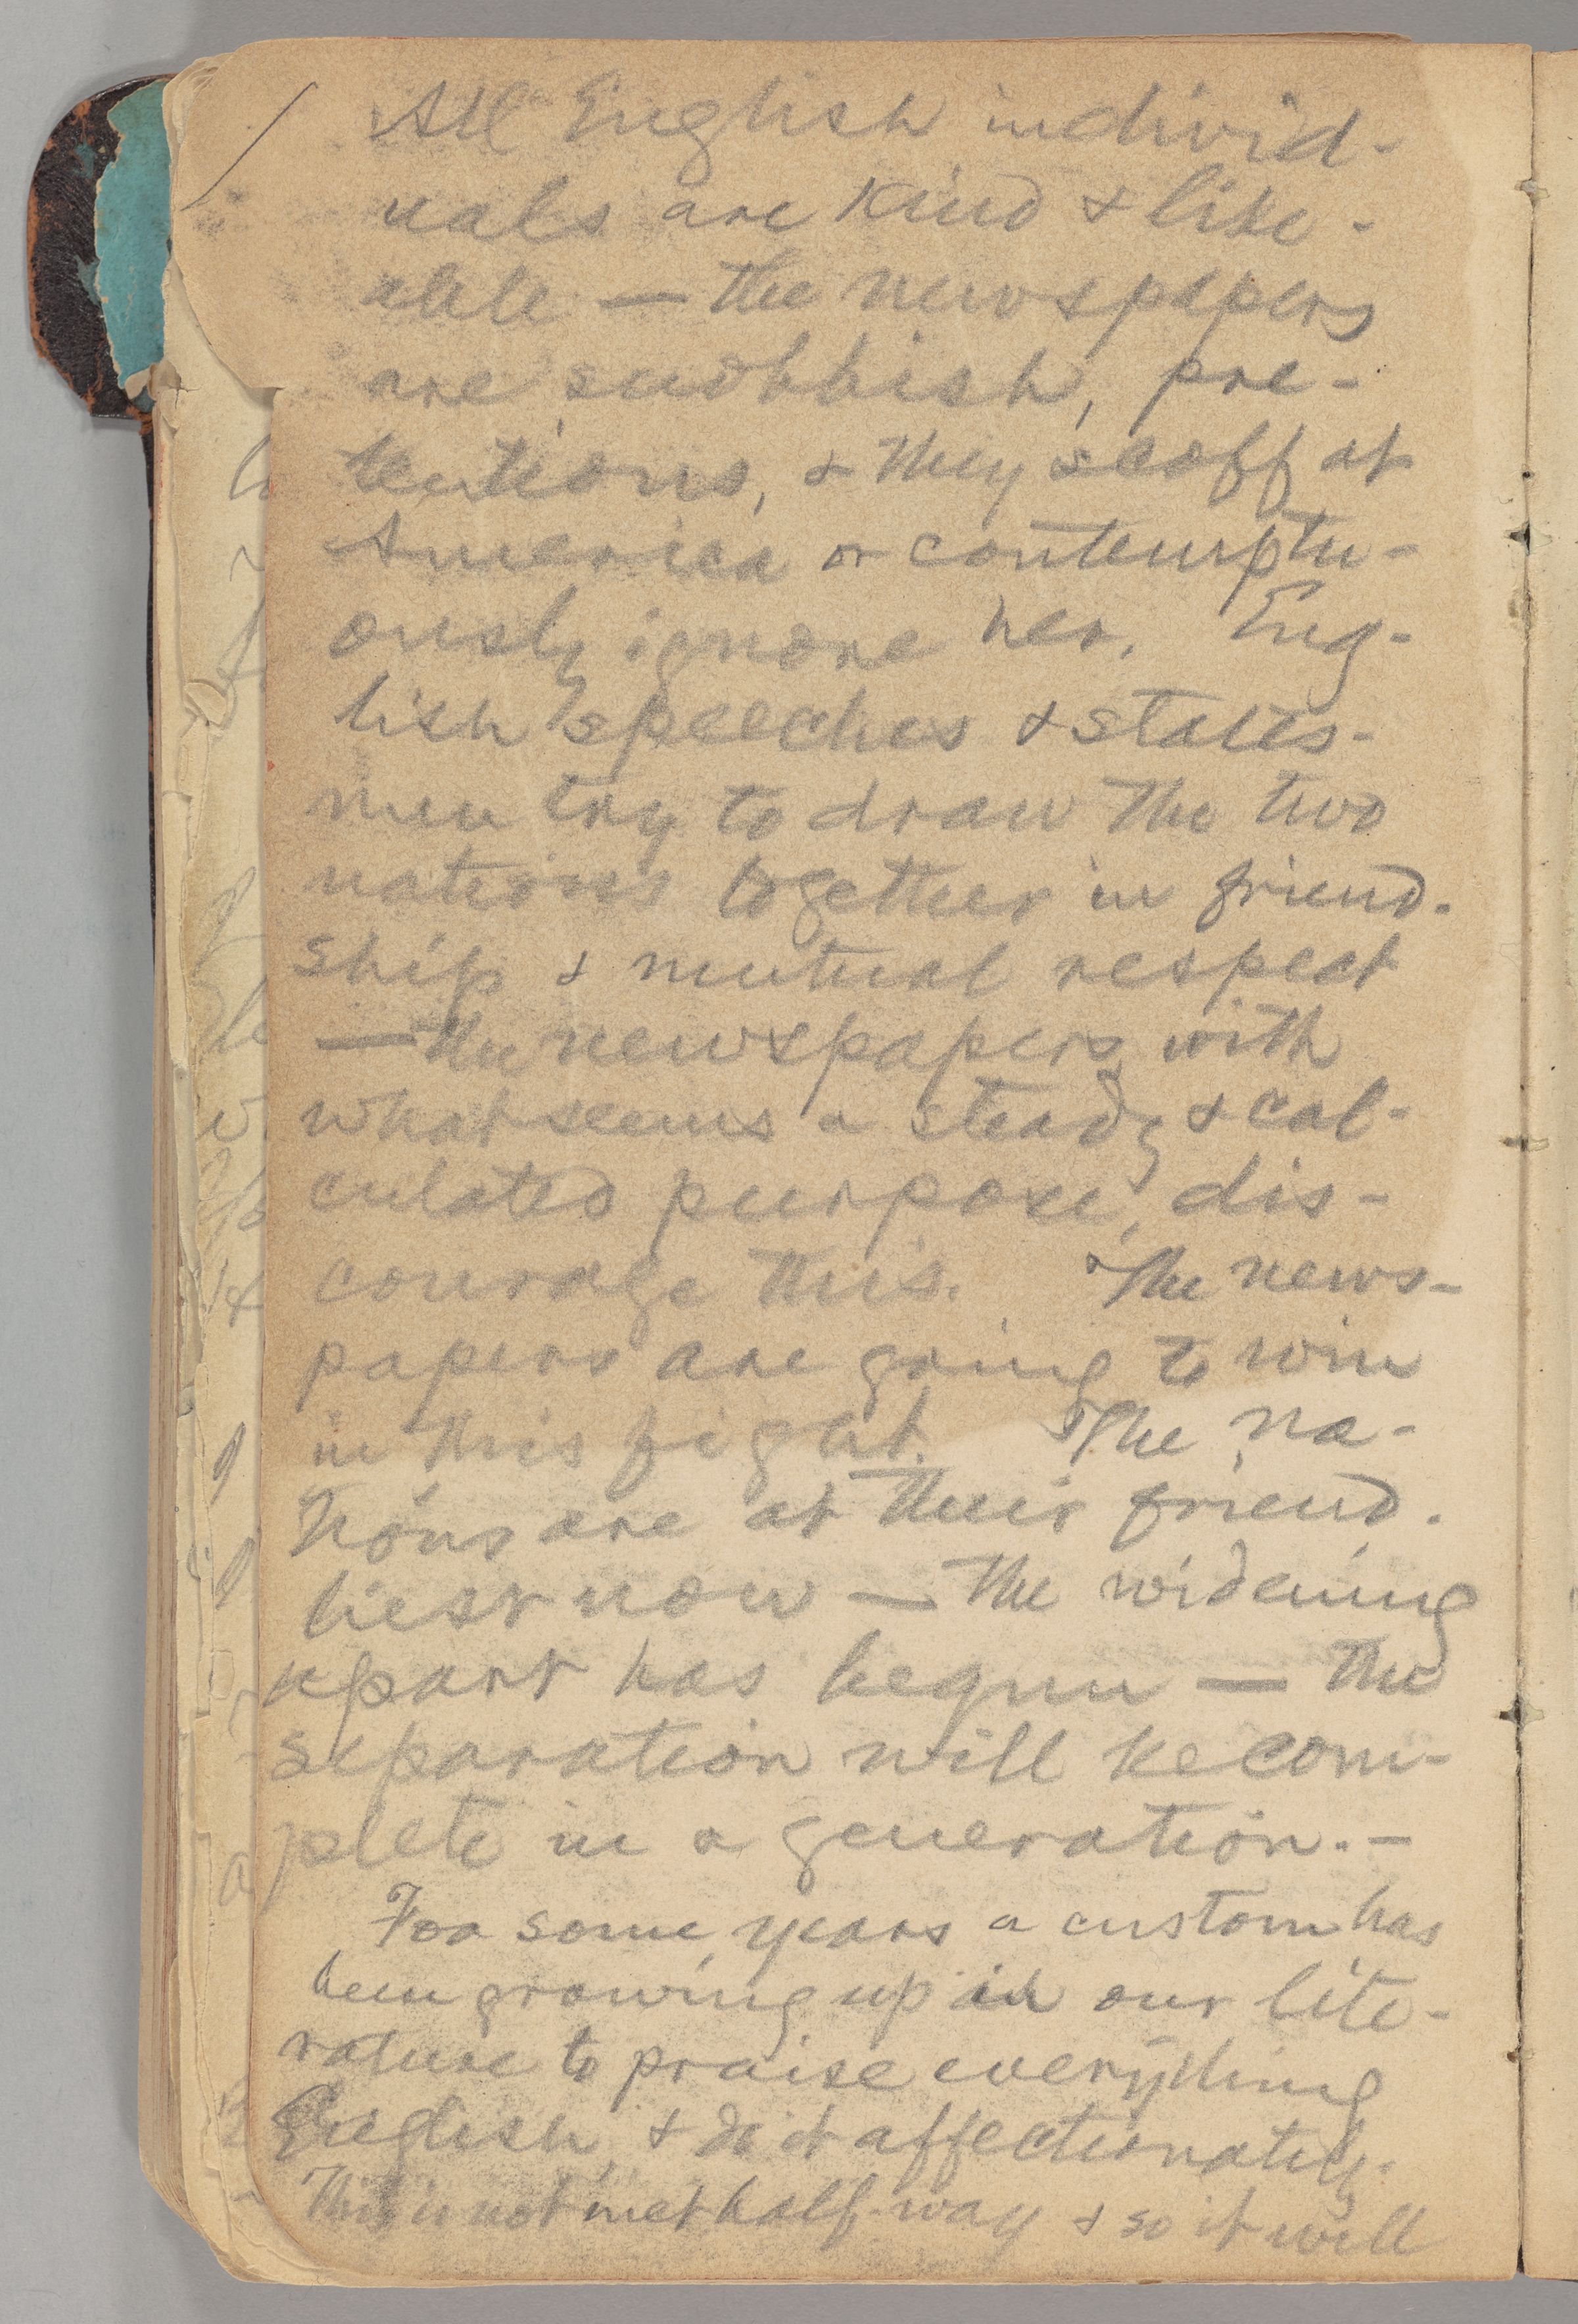 All English individ-
uals are kind & like-
able — the newspapers
are snobbish, pre-
tentious, & they scoff at
America or contemptu-
ously ignore her. Eng-
lish speeches & states-
men try to draw the two
nations together in friend-
ship & mutual respect
— the newspapers, with
what seems a steady & cal-
culated purpose, dis-
courage this. The news-
papers are going to win
in this fight. The na-
tions are at their friend-
liest now — the widening
apart has begun — the
separation will be com-
plete in a generation. —
For some years a custom has
been growing up in our lite-
rature to praise everything
English, & do it affectionately.
This is not met half-way & so it will